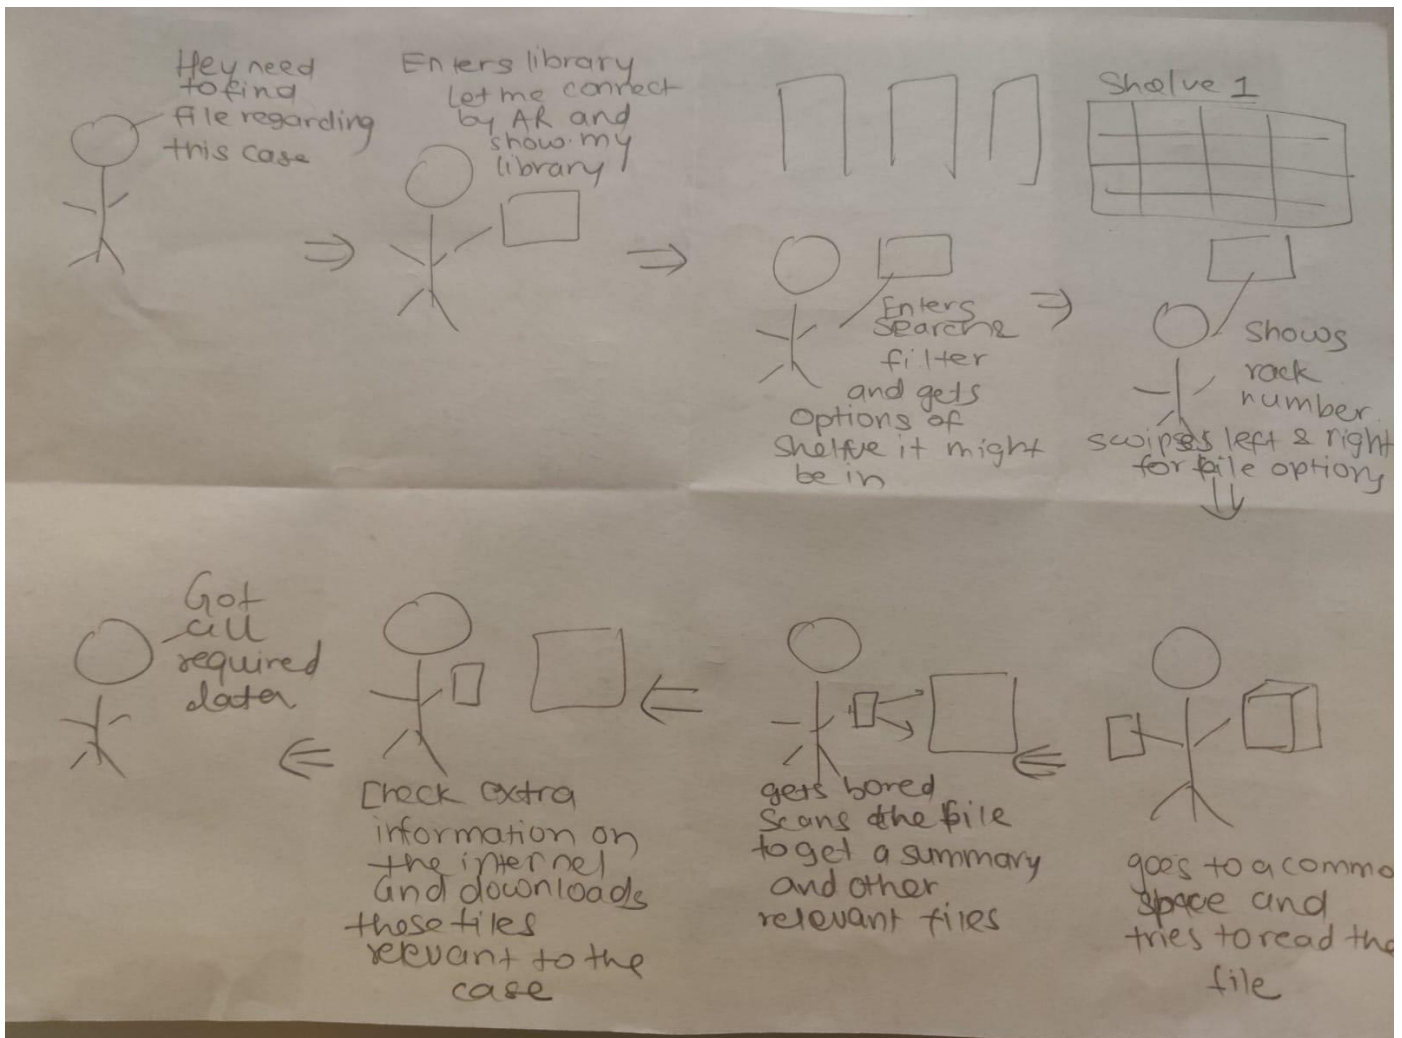 Hey need
to find
file regarding
this case
Enters library
Let me connect
by AR and
show my
library
Enters
search &
filter
and gets
options of
shelve it might
be in
Shelve 1
Shows
rack
number.
swipes left & right
for file options
goes to a commo
space and
tries to read the
file
gets bored
scans the file
to get a summary
and other
relevant files
Check extra
information on
the internel
and downloads
those files
relevant to the
case
Got
all
required
data